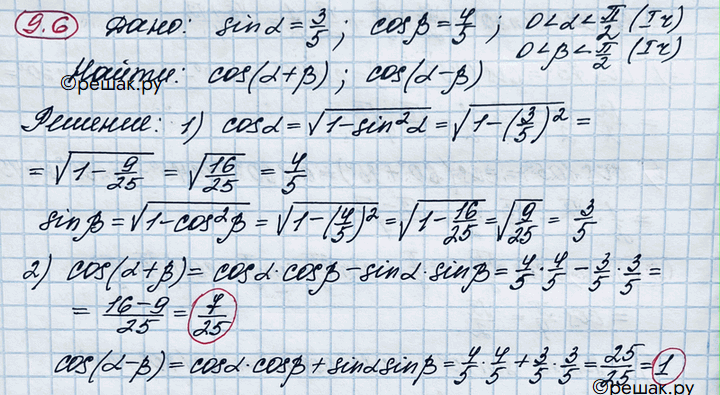 9.6 Дано: sin α = 3/5; cos β = 4/5; 0 < α < π/2 (I ч)
0 < β < π/2 (I ч)
Найти: cos(α+β); cos(α-β)
©решак.ру
Решение: 1) cos α = √(1-sin²α) = √(1-(3/5)²) =
= √(1-9/25) = √(16/25) = 4/5
sin β = √(1-cos²β) = √(1-(4/5)²) = √(1-16/25) = √(9/25) = 3/5
2) cos(α+β) = cos α · cos β - sin α · sin β = 4/5 · 4/5 - 3/5 · 3/5 =
= (16-9)/25 = 7/25
cos(α-β) = cos α · cos β + sin α sin β = 4/5 · 4/5 + 3/5 · 3/5 = 25/25 = 1
©решак.ру